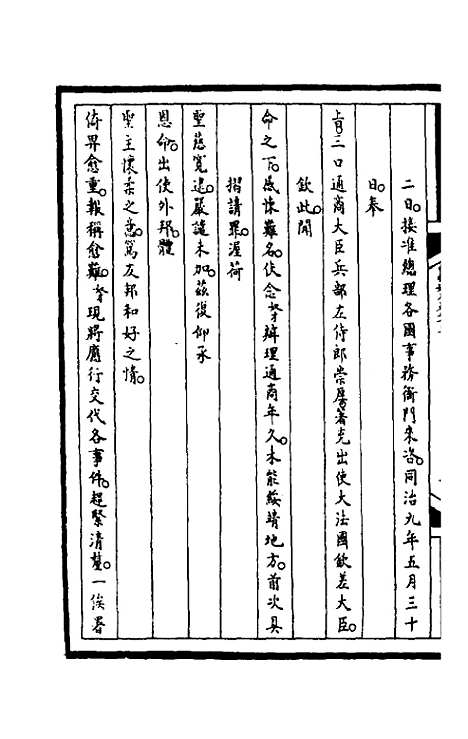 二日。接准總理各國事務衙門來咨。同治九年五月三十
日。奉
上諭。三口通商大臣兵部左侍郎崇厚著充出使大法國欽差大臣。
欽此。聞
命之下。感悚難名。伏念奴才辦理通商年久。未能綏靖地方。前次具
摺請罪。渥荷
聖慈寬逭。嚴譴未加。茲復仰承
恩命。出使外邦。體
聖主懷柔之意。篤友邦和好之情。
倚畀愈重。報稱愈難。奴才現將應行交代各事件。趕緊清釐。一俟署